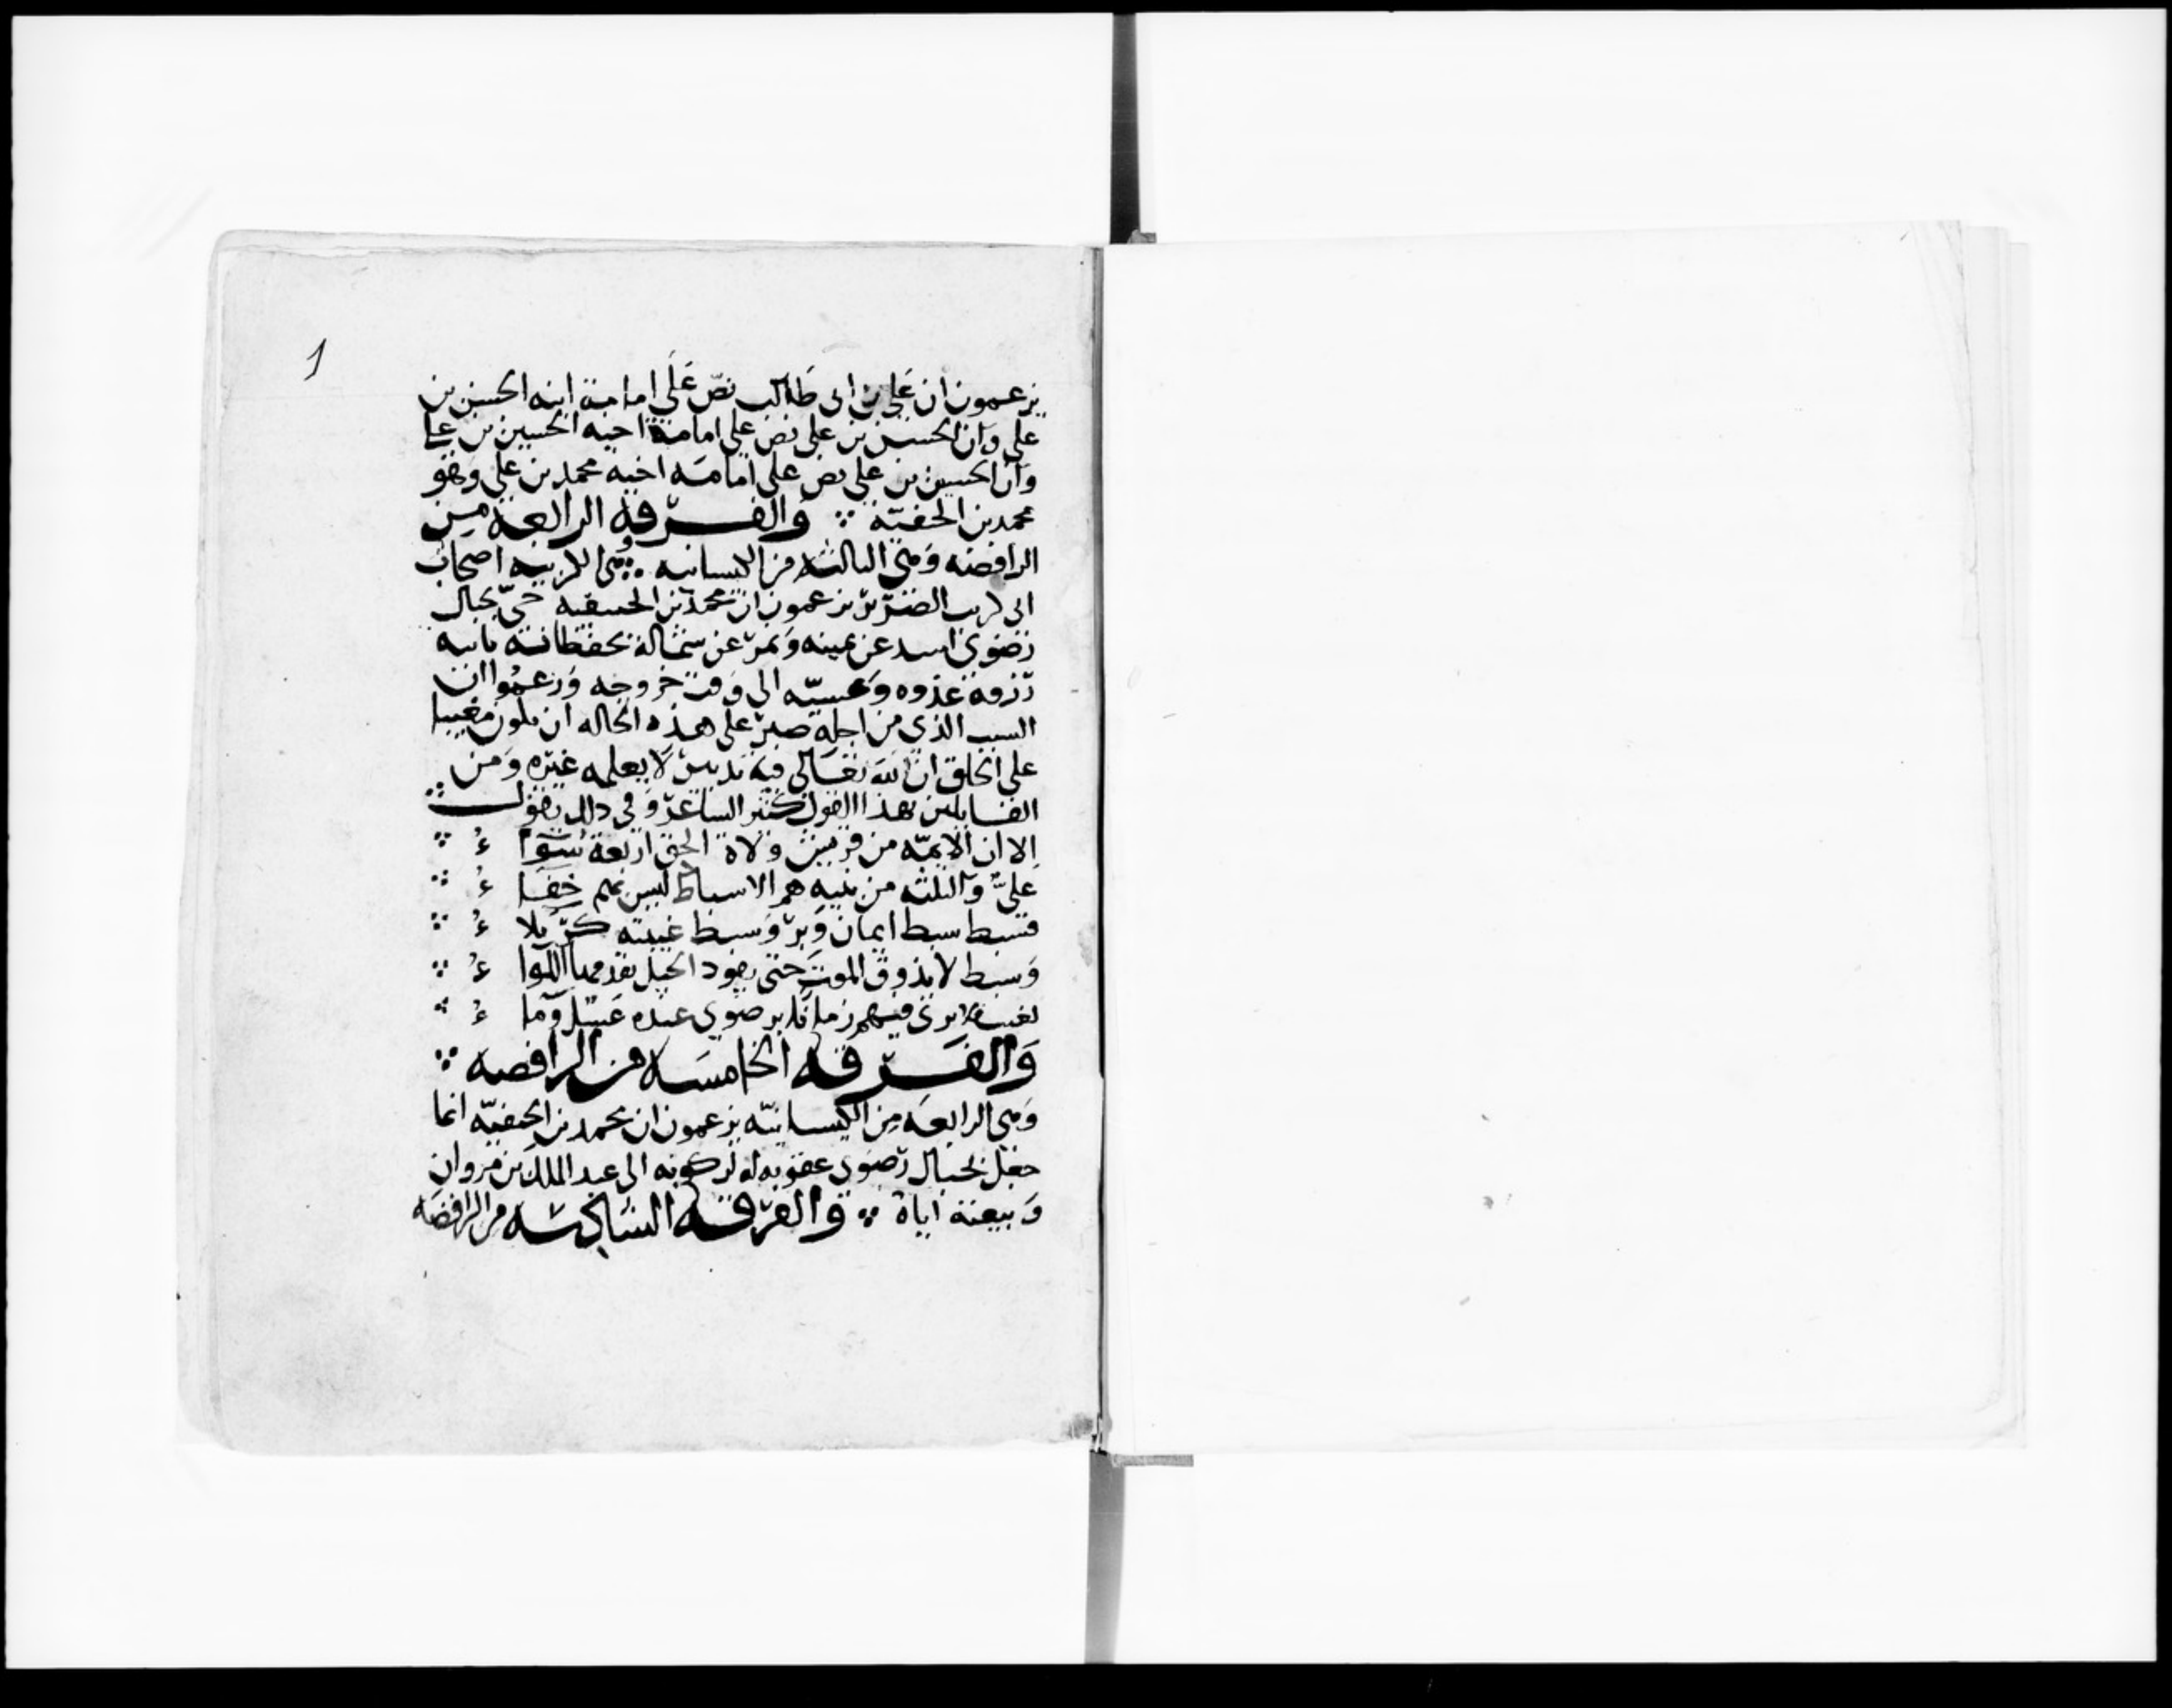 1
يزعمون ان علي بن ابي طالب نصّ عَلَى امامة ابنه الحسن بن
علي وَان الحسن بن علي نص علي امامة اخيه الحسين بن علي
وَان الحسين بن علي نص علي امامَه اخيه محمد بن علي وَهو
محمد بن الحنفيّه ∴ وَالفرقه الرابعة مِن
الرافضه وَهي الثالثه من الكيسانيه ∴ وهي الكربيه اصحاب
ابي كرب الضرير يزعمون ان محمد بن الحنيفيه حيّ بجبال
رَضوى اسد عن يمينه وَنمر عن شماله يحفظانه ياتيه
رزقه غدوه وَعشيّه الى وَقت خروجه وَزعمُوا ان
السبب الذي من اجله صبر على هذه الحاله ان يكون مغيبا
على الخلق ان لله تعَالى فيه تدبير لَا يعلمه غيره وَمن
القايلين بهذا القول كثير الشاعر وَفي ذلك يقول ∴
الا ان الايمّه من قريش وَلاة الحق اربعة سَوَا ءُ ∴
عَليّ وَالثلثه من بنيه هم الاسباط ليس بهم خفَا ءُ ∴
فسبط سبط ايمان وَبر وَسبط غيبته كرّبلا ءُ ∴
وَسبط لا يذوق الموت حتى يقود الخيل يقدمها اللوا ءُ ∴
تغيب لا يرى فيهم زمانا برضوى عنده عَسَل وَما ءُ ∴
وَالفَرقه الخامسَه من الرافضه ∴
وَهي الرابعَه مِن الكيسانيّه يزعمون ان محمد بن الحنفيّه انما
جعل بجبال رَضوى عقوبه له لركونه الى عبد الملك بن مروان
وَبيعته اياه ∴ وَالفرقه السادسَه من الرافضَه